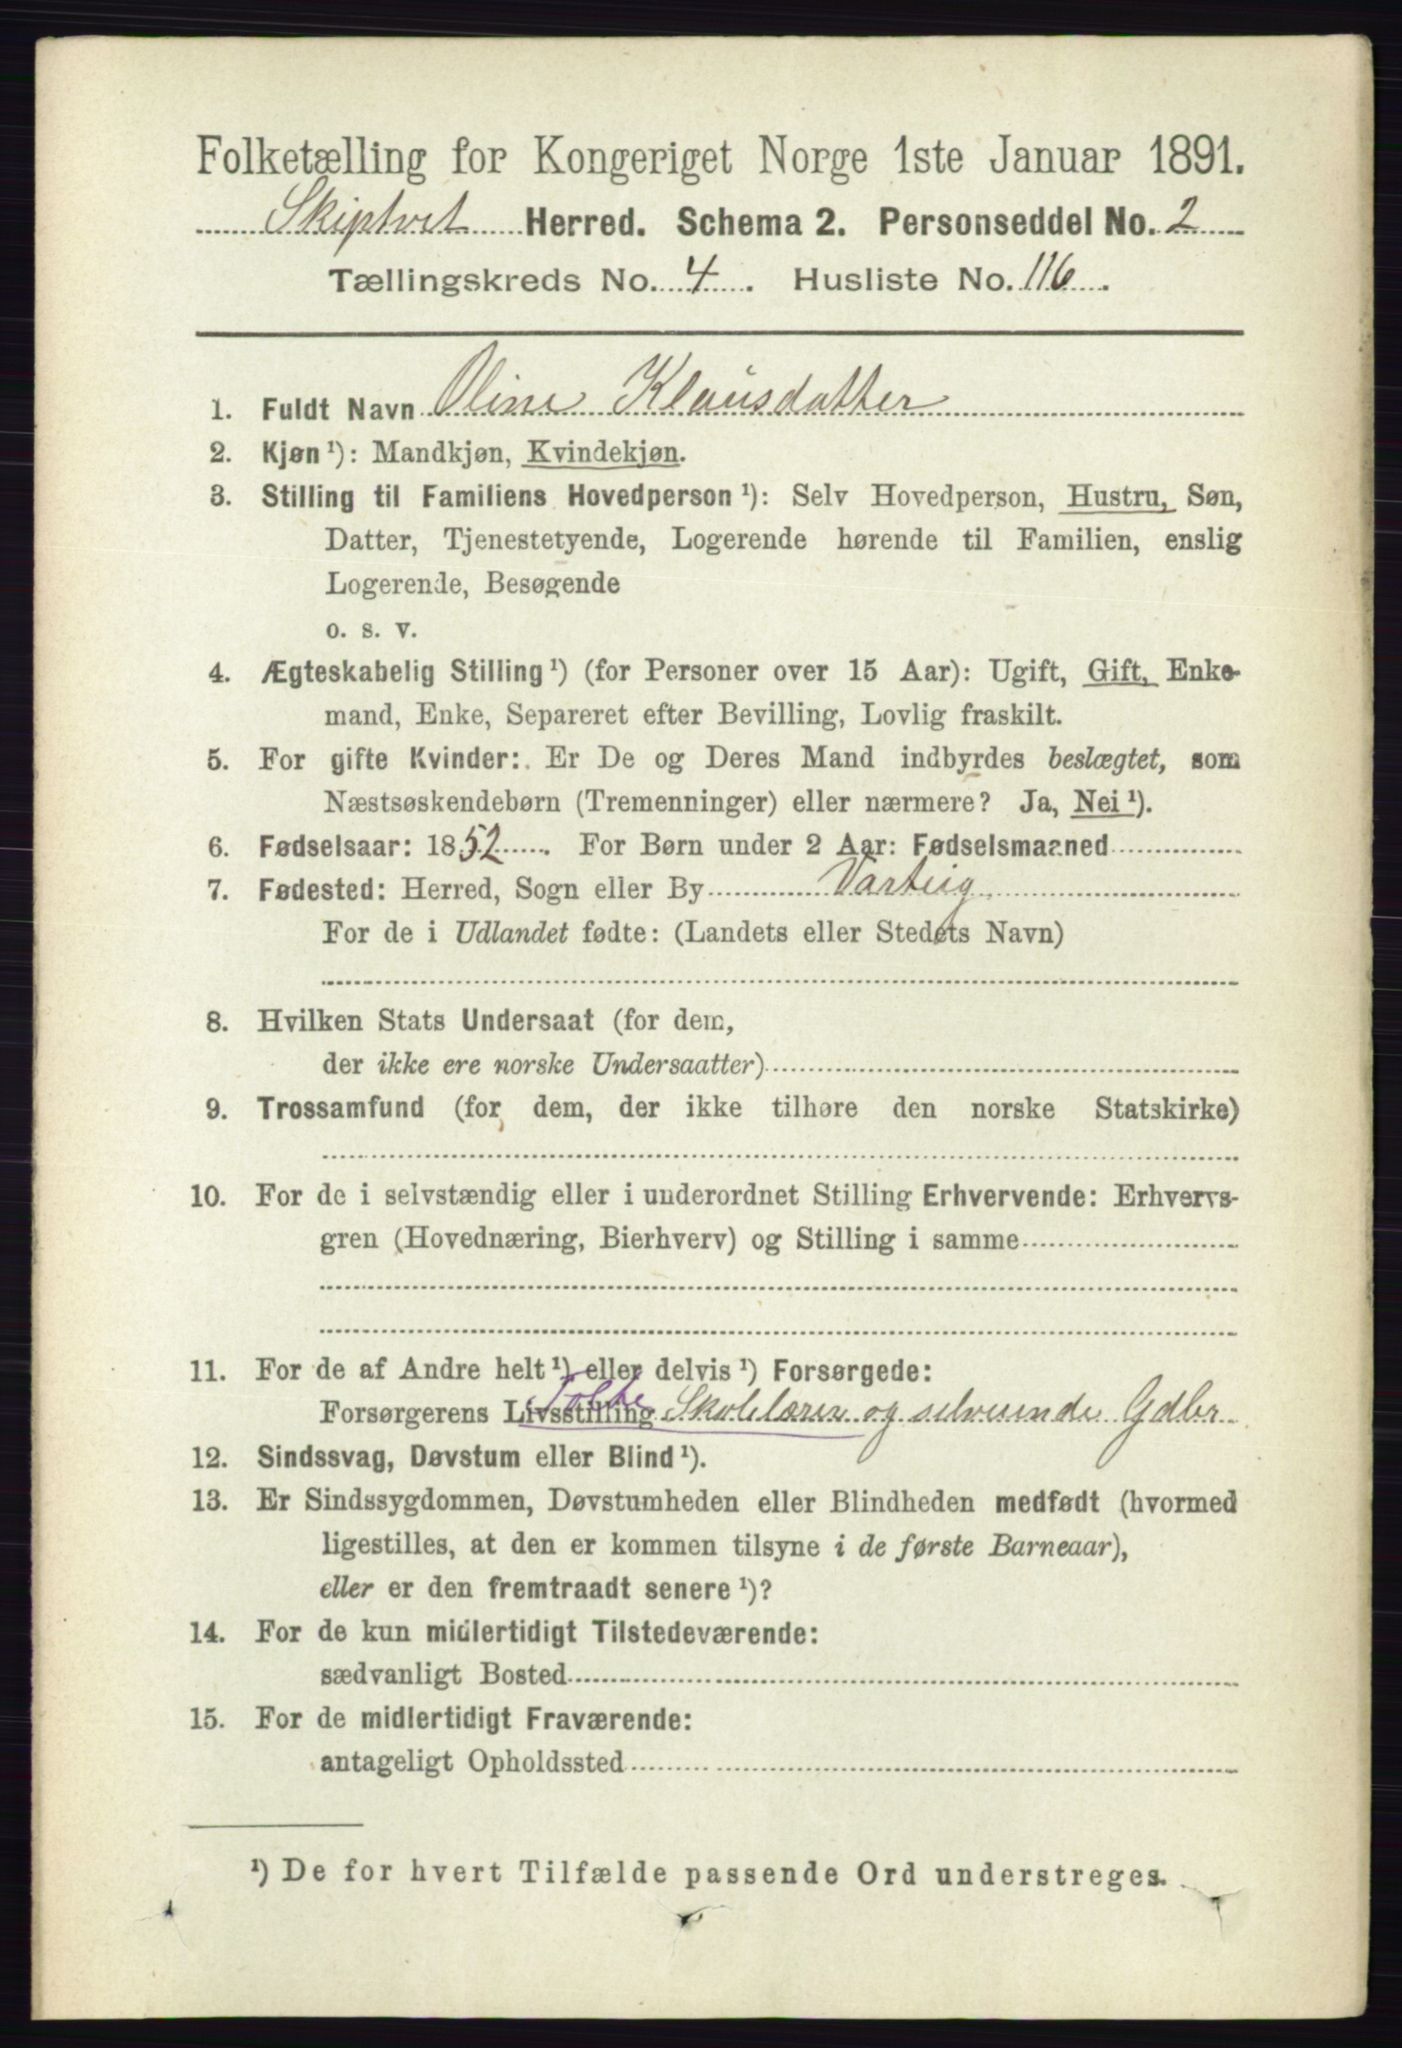 Folketælling for Kongeriget Norge 1ste Januar 1891.
Skiptvet Herred. Schema 2. Personseddel No. 2
Tællingskreds No. 4. Husliste No. 116.
1. Fuldt Navn Oline Klausdatter
2. Kjøn ¹): Mandkjøn, Kvindekjøn.
3. Stilling til Familiens Hovedperson ¹): Selv Hovedperson, Hustru, Søn,
Datter, Tjenestetyende, Logerende hørende til Familien, enslig
Logerende, Besøgende
o. s. v.
4. Ægteskabelig Stilling ¹) (for Personer over 15 Aar): Ugift, Gift, Enke-
mand, Enke, Separeret efter Bevilling, Lovlig fraskilt.
5. For gifte Kvinder: Er De og Deres Mand indbyrdes beslægtet, som
Næstsøskendebørn (Tremenninger) eller nærmere? Ja, Nei ¹).
6. Fødselsaar: 1852. For Børn under 2 Aar: Fødselsmaaned
7. Fødested: Herred, Sogn eller By Varteig
For de i Udlandet fødte: (Landets eller Stedets Navn)
8. Hvilken Stats Undersaat (for dem,
der ikke ere norske Undersaatter)
9. Trossamfund (for dem, der ikke tilhøre den norske Statskirke)
10. For de i selvstændig eller i underordnet Stilling Erhvervende: Erhvervs-
gren (Hovednæring, Bierhverv) og Stilling i samme
11. For de af Andre helt ¹) eller delvis ¹) Forsørgede:
Forsørgerens Livsstilling Skolelærer og selveiende Gdbr
12. Sindssvag, Døvstum eller Blind ¹).
13. Er Sindssygdommen, Døvstumheden eller Blindheden medfødt (hvormed
ligestilles, at den er kommen tilsyne i de første Barneaar),
eller er den fremtraadt senere ¹)?
14. For de kun midlertidigt Tilstedeværende:
sædvanligt Bosted
15. For de midlertidigt Fraværende:
antageligt Opholdssted
¹) De for hvert Tilfælde passende Ord understreges.